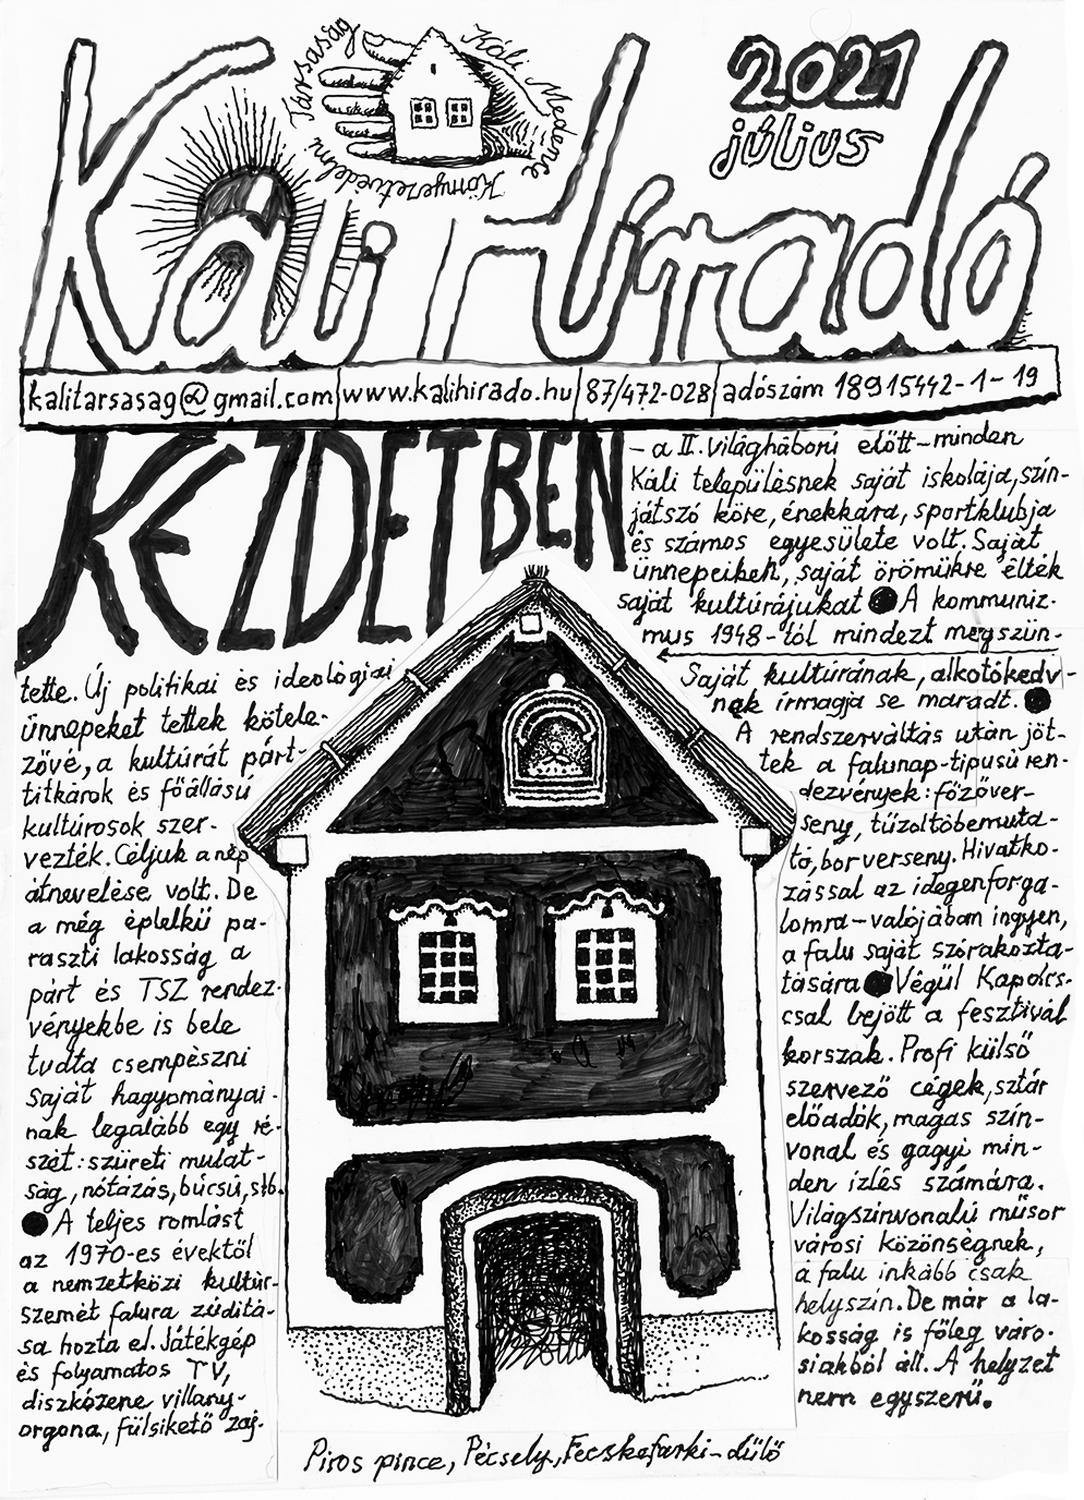 Káli Medence
Környezetvédelmi Társaság
2021
július
Káli Híradó
kalitarsasag@gmail.com | www.kalihirado.hu | 87/472-028 | adószám 18915442-1-19
KEZDETBEN
– a II. Világháború előtt – minden
Káli településnek saját iskolája, szín-
játszó köre, énekkara, sportklubja
és számos egyesülete volt. Saját
ünnepeiken, saját örömükre élték
saját kultúrájukat ● A kommuniz-
mus 1948-tól mindezt megszün-
tette. Új politikai és ideológiai
ünnepeket tettek kötele-
zővé, a kultúrát párt-
titkárok és főállású
kultúrosok szer-
vezték. Céljuk a nép
átnevelése volt. De
a még éplelkű pa-
raszti lakosság a
párt és TSZ rendez-
vényekbe is bele
tudta csempészni
saját hagyományai-
nak legalább egy ré-
szét: szüreti mulat-
ság, nótázás, búcsú, stb.
● A teljes romlást
az 1970-es évektől
a nemzetközi kultúr-
szemét falura zúdítá-
sa hozta el. Játékgép
és folyamatos TV,
diszkózene villany-
orgona, fülsikető zaj.
Saját kultúrának, alkotókedv-
nek írmagja se maradt. ●
A rendszerváltás után jöt-
tek a falunap-típusú ren-
dezvények: főzőver-
seny, tűzoltóbemuta-
tó, borverseny. Hivatko-
zással az idegenforga-
lomra – valójában ingyen,
a falu saját szórakozta-
tására ● Végül Kapolcs-
csal bejött a fesztivál
korszak. Profi külső
szervező cégek, sztár
előadók, magas szín-
vonal és gagyi min-
den ízlés számára.
Világszínvonalú műsor
városi közönségnek,
a falu inkább csak
helyszín. De már a la-
kosság is főleg váro-
siakból áll. A helyzet
nem egyszerű.
Piros pince, Pécsely, Fecskefarki-dűlő